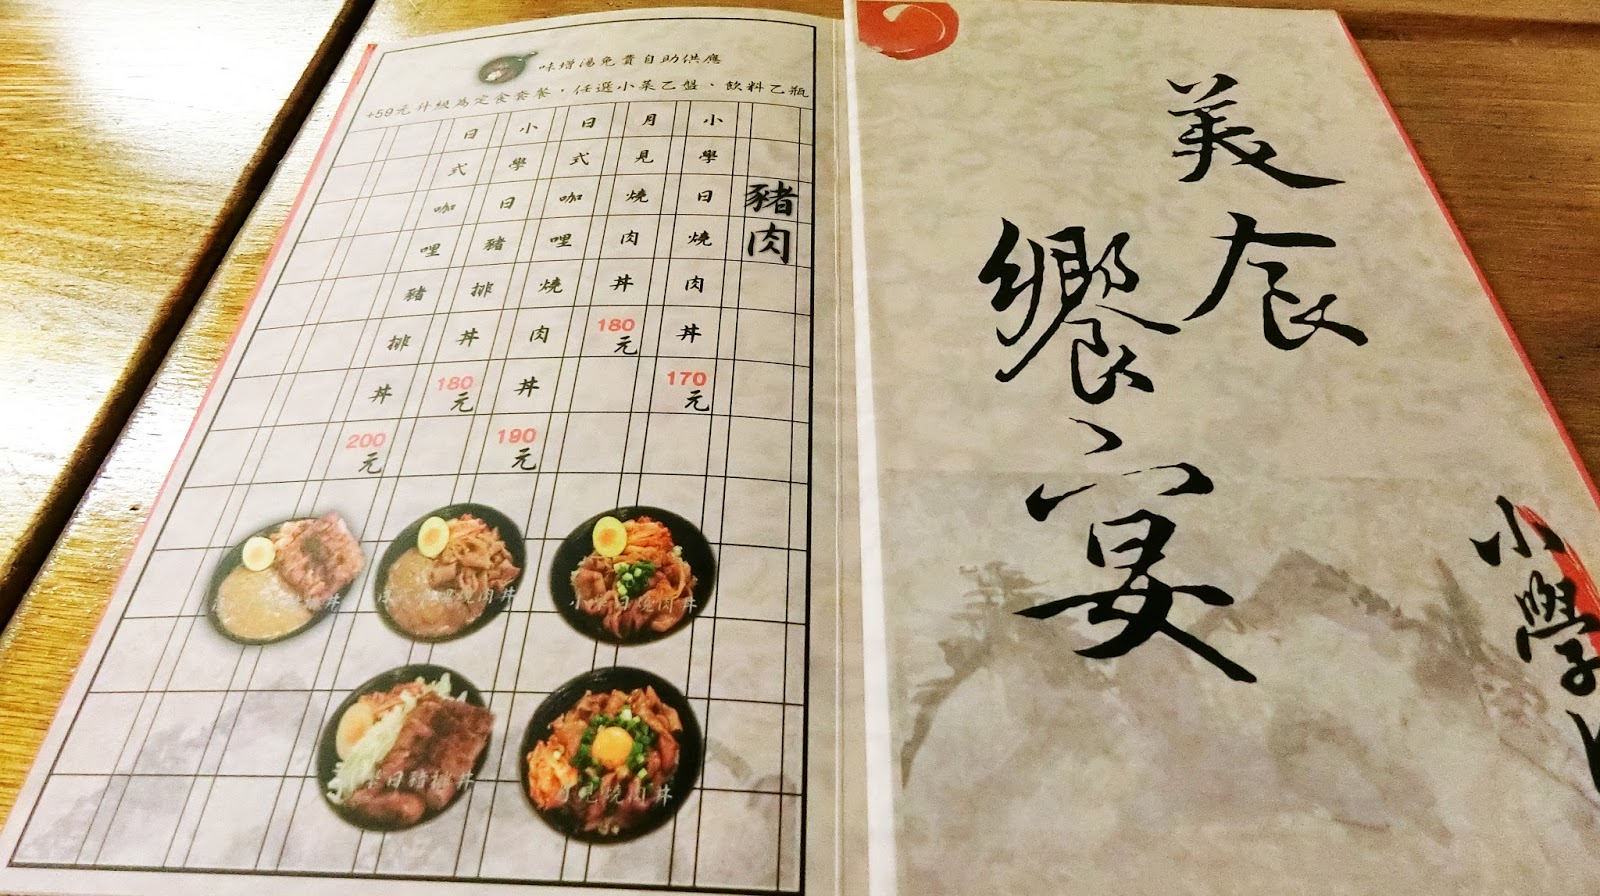 味增湯免費自助供應
+59元升級為定食套餐，任選小菜乙盤、飲料乙瓶
豬肉
小學日燒肉丼170元
月見燒肉丼180元
日式咖哩燒肉丼190元
小學日豬排丼180元
日式咖哩豬排丼200元
小學日燒肉丼
月見燒肉丼
美食
饗宴
小學